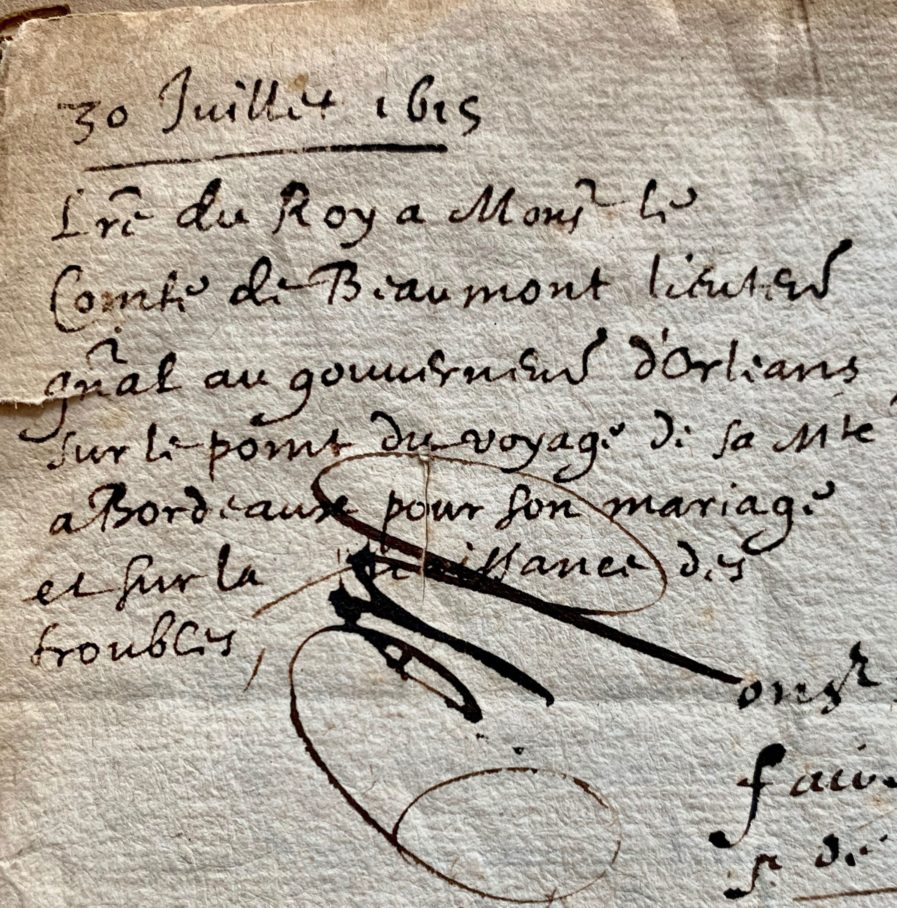 30 Juillet 1615
Lr̃e du Roy a Monsr le
Comte de Beaumont lieutent
gñal au gouvernemt d'Orleans
sur le point du voyage de sa Mte
a Bordeaux pour son mariage
et sur la naissance des
troubles,
onsr
faire
de